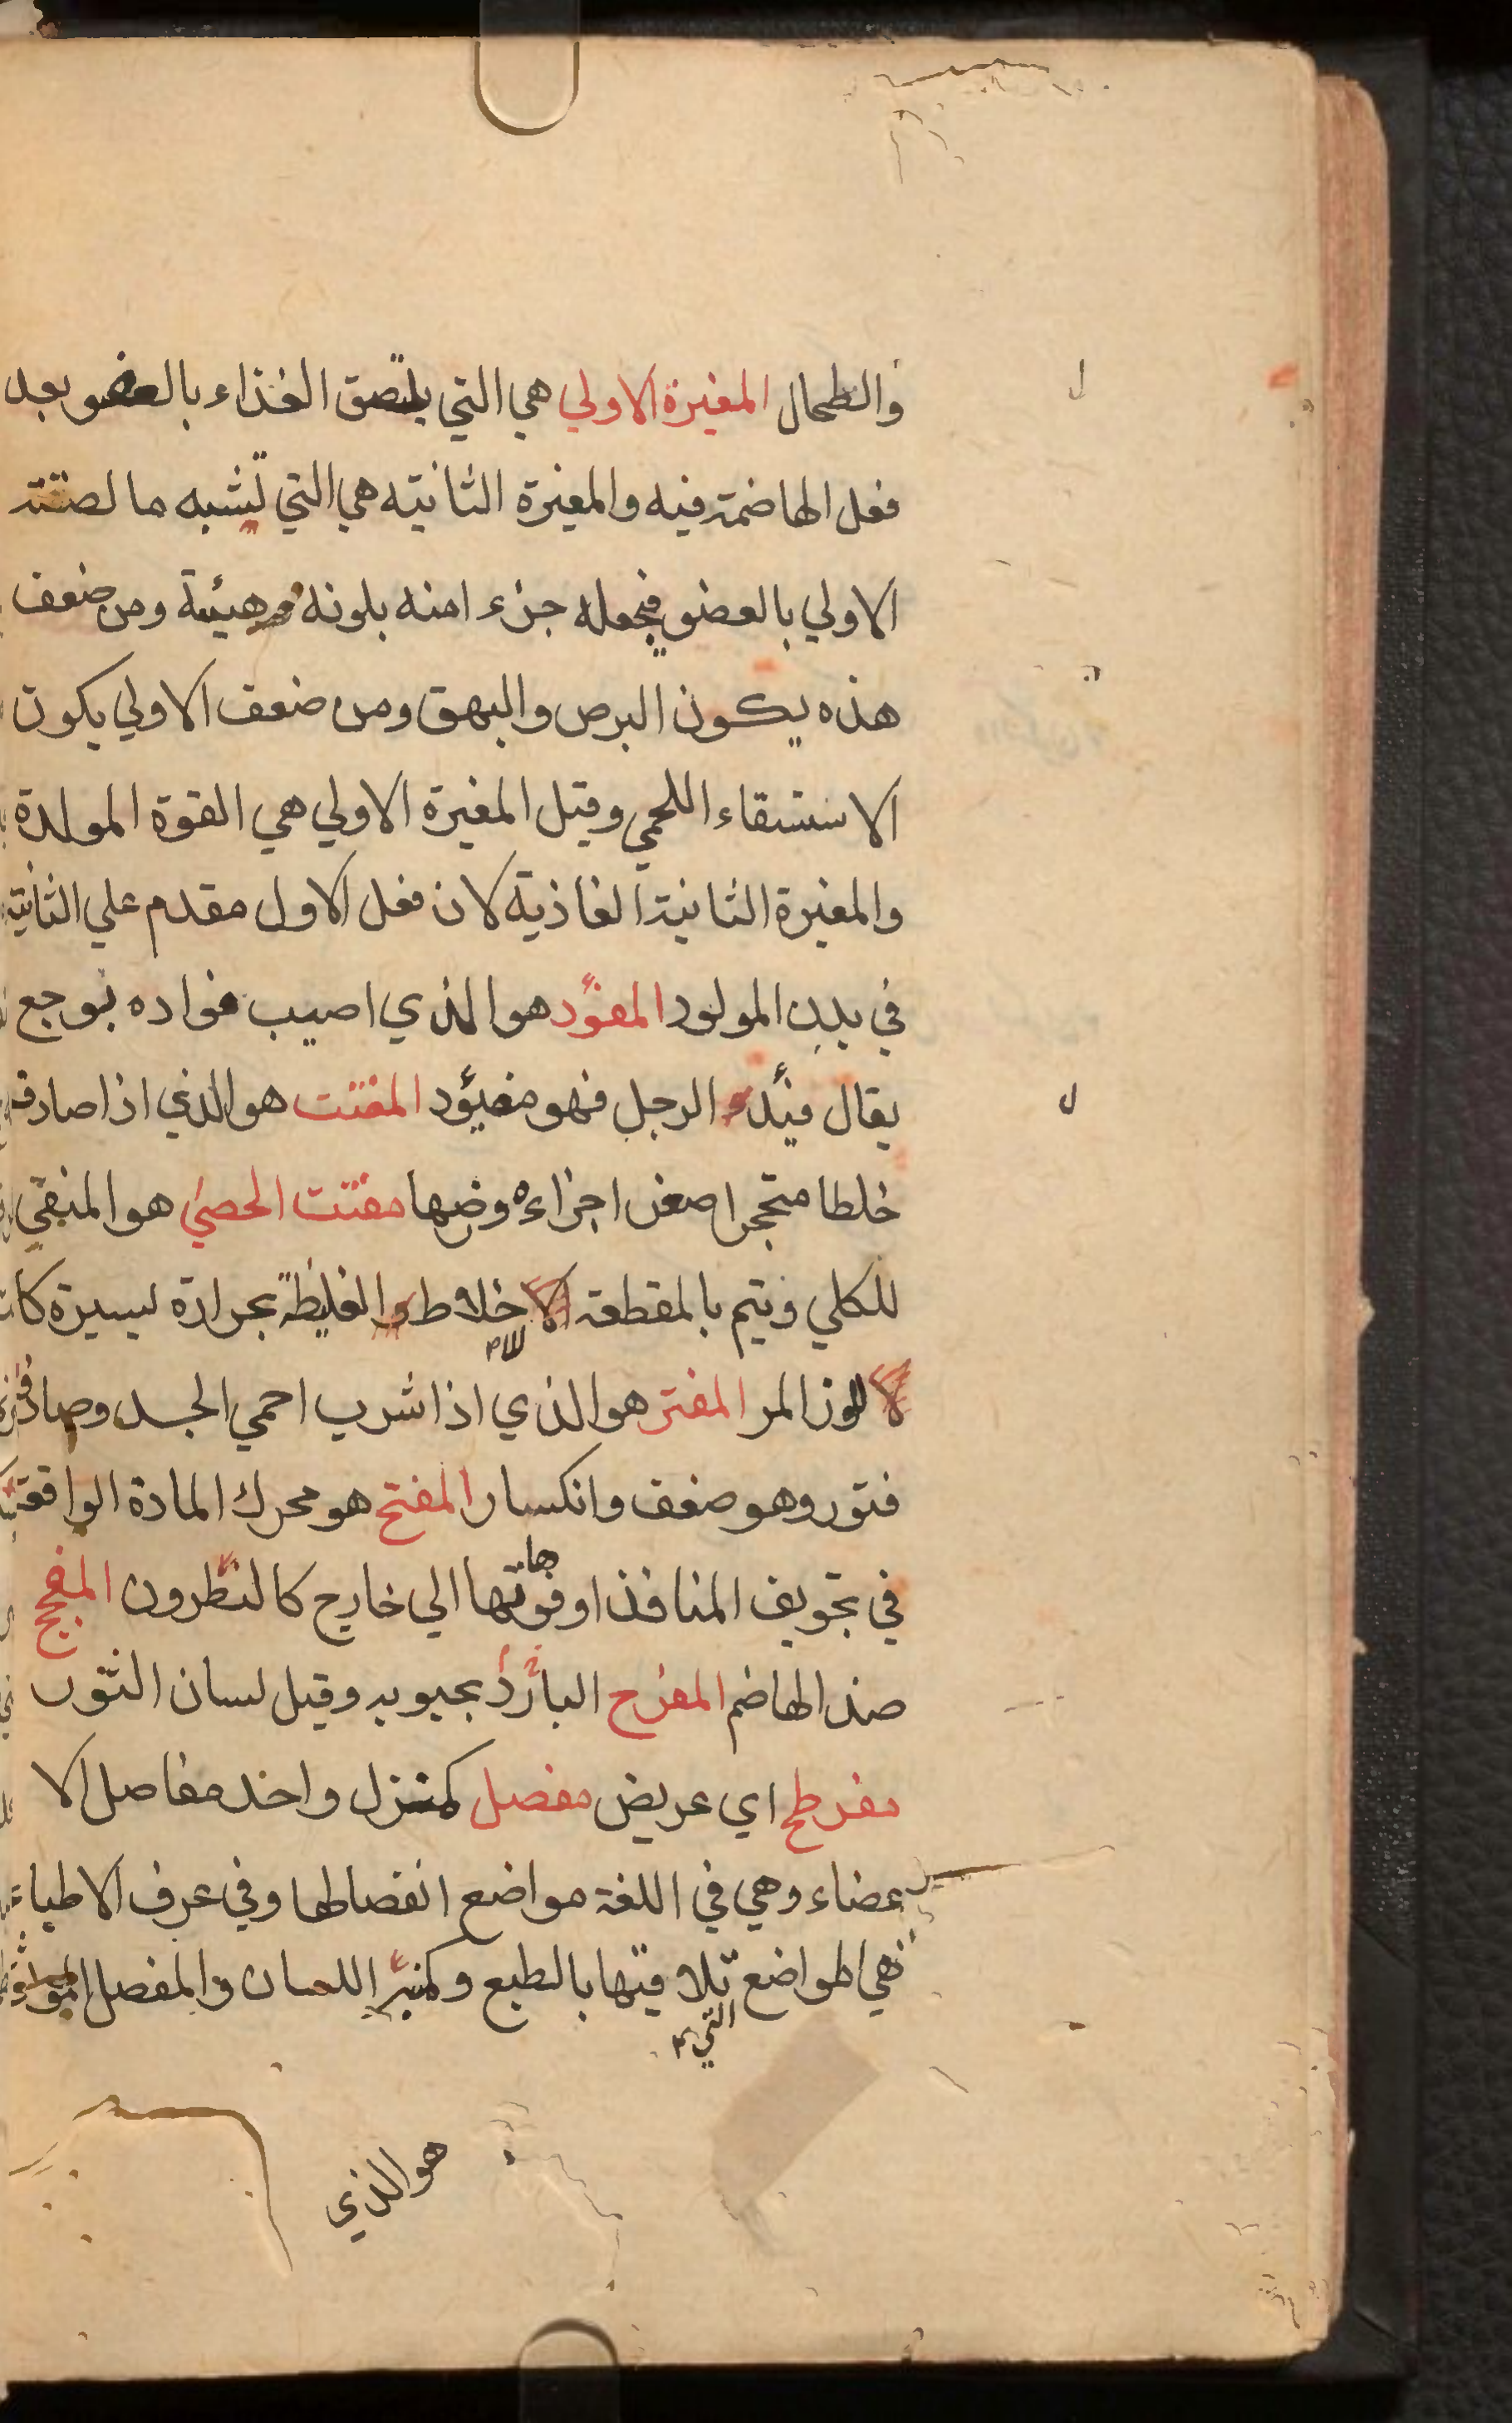 والطحال المغيرة الاولي هي التي يلتصق الغذاء بالعضو بعد
فعل الهاضمة فيه والمغيرة الثانيه هي التي تشبه ما لصقته
الاولي بالعضو فيجعله جزء امنه بلونه وهيئة ومن ضعف
هذه يكون البرص والبهق ومن ضعف الاولي يكون
الاستسقاء اللحمي وقيل المغيرة الاولي هي القوة المولدة
والمغيرة الثانية الغاذية لان فعل الاول مقدم علي الثانية
في بدن المولود المفؤد هو الذي اصيب فواده بوجع
يقال فئد الرجل فهو مفيؤد المفتت هو الذي اذا صادف
خلطا متحجرا صغر اجزاءه ورضها مفتت الحصي هو المنقي
للكلي ويتم بالمقطعة الاخلاط الغليظة بحرارة يسيرة كا
للوز المر المفتر هو الذي اذا شرب احمي الجسد وصادف
فتور وهو ضعف وانكسار المفتح هو محرك المادة الواقعة
في تجويف المنافذ او فوهاتها الي خارج كالنطرون المفجج
ضد الهاضم المفرح البارد بجبويه وقيل لسان الثور
مفرطح اي عريض مفصل كمنزل واحد مفاصل الا
عضاء وهي في اللغة مواضع انفصالها وفي عرف الاطباء
هي المواضع تلاقيها بالطبع وكمنبر اللسان والمفصل الموثق
التي
هو الذي
ل
ل